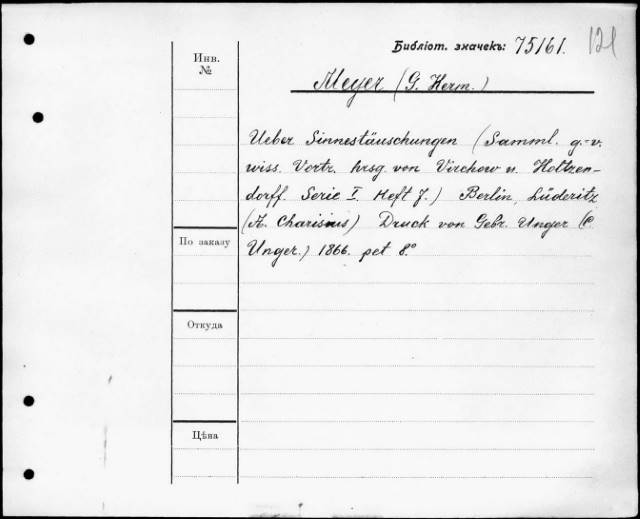 Библіот. значекъ: 75161. 121
Инв.
№
Meyer (G. Herm.)
Ueber Sinnestäuschungen (Samml. g.-v.
wiss. Vortr. hrsg. von Virchow u. Holtzen-
dorff. Serie I. Heft 7.) Berlin, Lüderitz
(A. Charisius) Druck von Gebr. Unger (C.
Unger.) 1866. pet 8.°
По заказу
Откуда
Цѣна